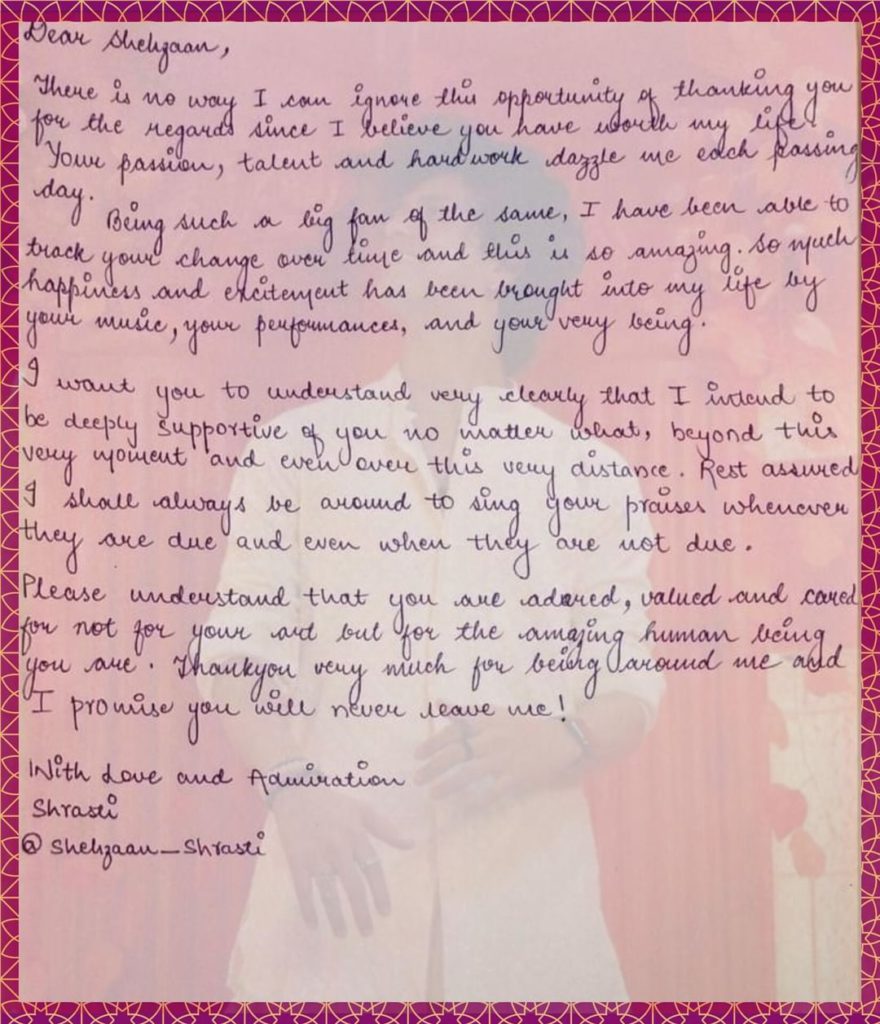 Dear Shehzaan,
There is no way I can ignore this opportunity of thanking you
for the regards since I believe you have worth my life.
Your passion, talent and hardwork dazzle me each passing
day.
Being such a big fan of the same, I have been able to
track your change over time and this is so amazing. So much
happiness and excitement has been brought into my life by
your music, your performances, and your very being.
I want you to understand very clearly that I intend to
be deeply supportive of you no matter what, beyond this
very moment and even over this very distance. Rest assured
I shall always be around to sing your praises whenever
they are due and even when they are not due.
Please understand that you are adored, valued and cared
for not for your art but for the amazing human being
you are. Thankyou very much for being around me and
I promise you will never leave me!
With Love and Admiration
Shrasti
@ Shehzaan_Shrasti